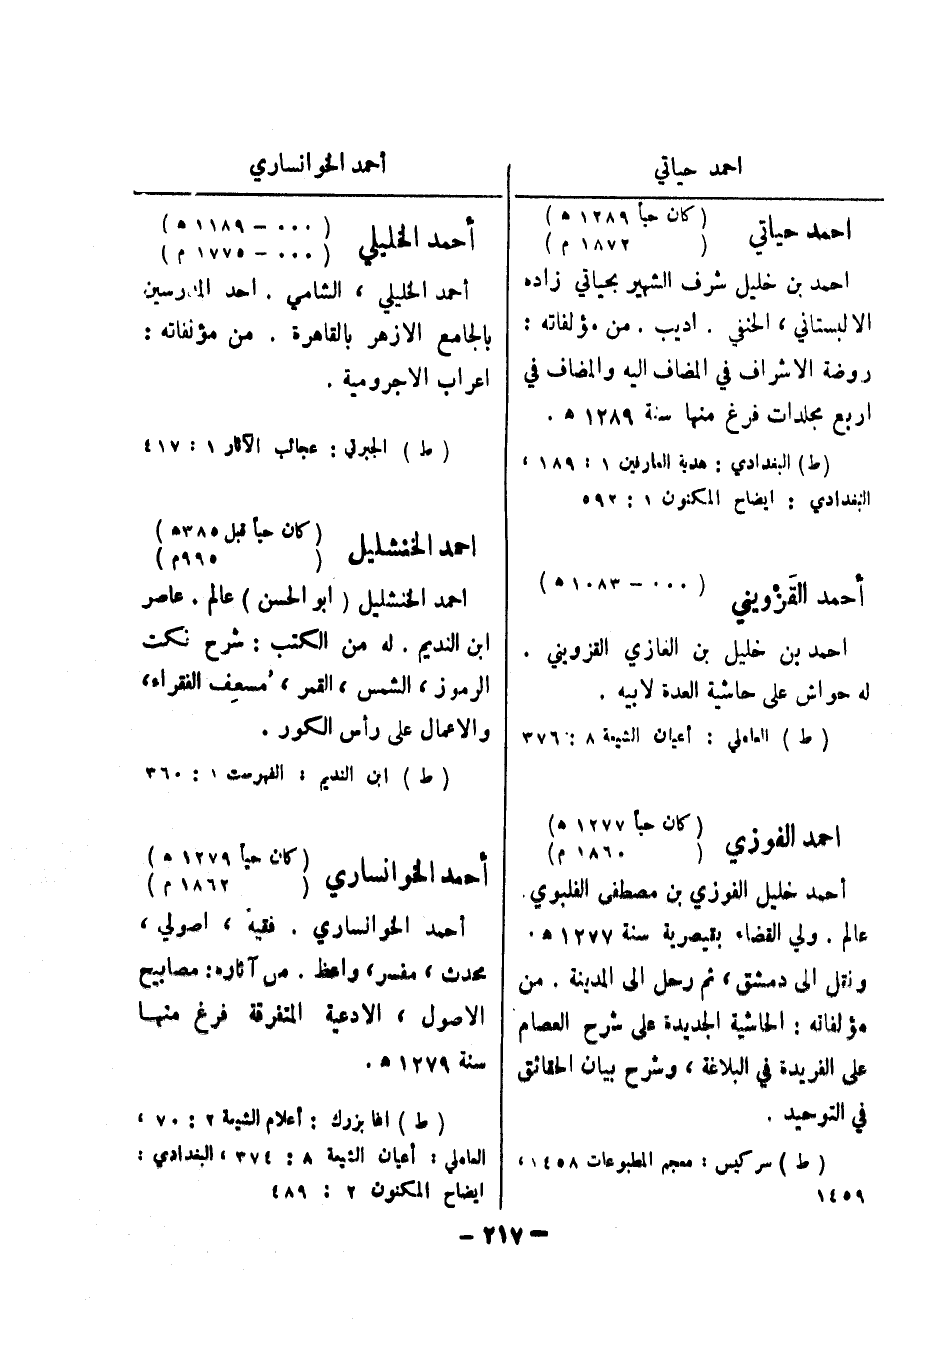 احمد حياتي
احمد حياتي
( كان حياً ١٢٨٩ ه )
( ١٨٧٢ م )
احمد بن خليل شرف الشهير بحياتي زاده
الالبستاني ، الحنفي . أديب . من مؤلفاته :
روضة الاشراف في المضاف اليه والمضاف في
اربع مجلدات فرغ منها سنة ١٢٨٩ ه .
( ط ) البغدادي : هدية العارفين ١ : ١٨٩ ،
البغدادي : ايضاح المكنون ١ : ٥٩٢
أحمد القَزْويني
( ٠٠٠ – ١٠٨٣ ه )
احمد بن خليل بن الغازي القزويني .
له حواش على حاشية العدة لابيه .
( ط ) العاملي : أعيان الشيعة ٨ : ٣٧٦
احمد الفوزي
( كان حياً ١٢٧٧ ه )
( ١٨٦٠ م )
أحمد خليل الفوزي بن مصطفى الفلبوي .
عالم . ولي القضاء بقيصرية سنة ١٢٧٧ ه .
ونقل الى دمشق ، ثم رحل الى المدينة . من
مؤلفاته : الحاشية الجديدة على شرح العصام
على الفريدة في البلاغة ، وشرح بيان الحقائق
في التوحيد .
( ط ) سركيس : معجم المطبوعات ١٤٥٨ ،
١٤٥٩
أحمد الخوانساري
أحمد الخليلي
( ٠٠٠ – ١١٨٩ ه )
( ٠٠٠ – ١٧٧٥ م )
أحمد الخليلي ، الشامي . احد المدرسين
بالجامع الازهر بالقاهرة . من مؤلفاته :
اعراب الاجرومية .
( ط ) الجبرتي : عجائب الآثار ١ : ٤١٧
احمد الخنشليل
( كان حياً قبل ٣٨٥ه )
( ٩٩٥م )
احمد الخنشليل ( ابو الحسن ) عالم . عاصر
ابن النديم . له من الكتب : شرح نكت
الرموز ، الشمس ، القمر ، مُسعِف الفقراء ،
والاعمال على رأس الكور .
( ط ) ابن النديم : الفهرست ١ : ٣٦٠
أحمد الخوانساري
( كان حياً ١٢٧٩ ه )
( ١٨٦٢ م )
أحمد الخوانساري . فقيه ، اصولي ،
محدث ، مفسر ، واعظ . من آثاره : مصابيح
الاصول ، الادعية المتفرقة فرغ منها
سنة ١٢٧٩ ه .
( ط ) اغا بزرك : أعلام الشيعة ٢ : ٧٠ ،
العاملي : أعيان الشيعة ٨ : ٣٧٤ ، البغدادي :
ايضاح المكنون ٢ : ٤٨٩
– ٢١٧ –